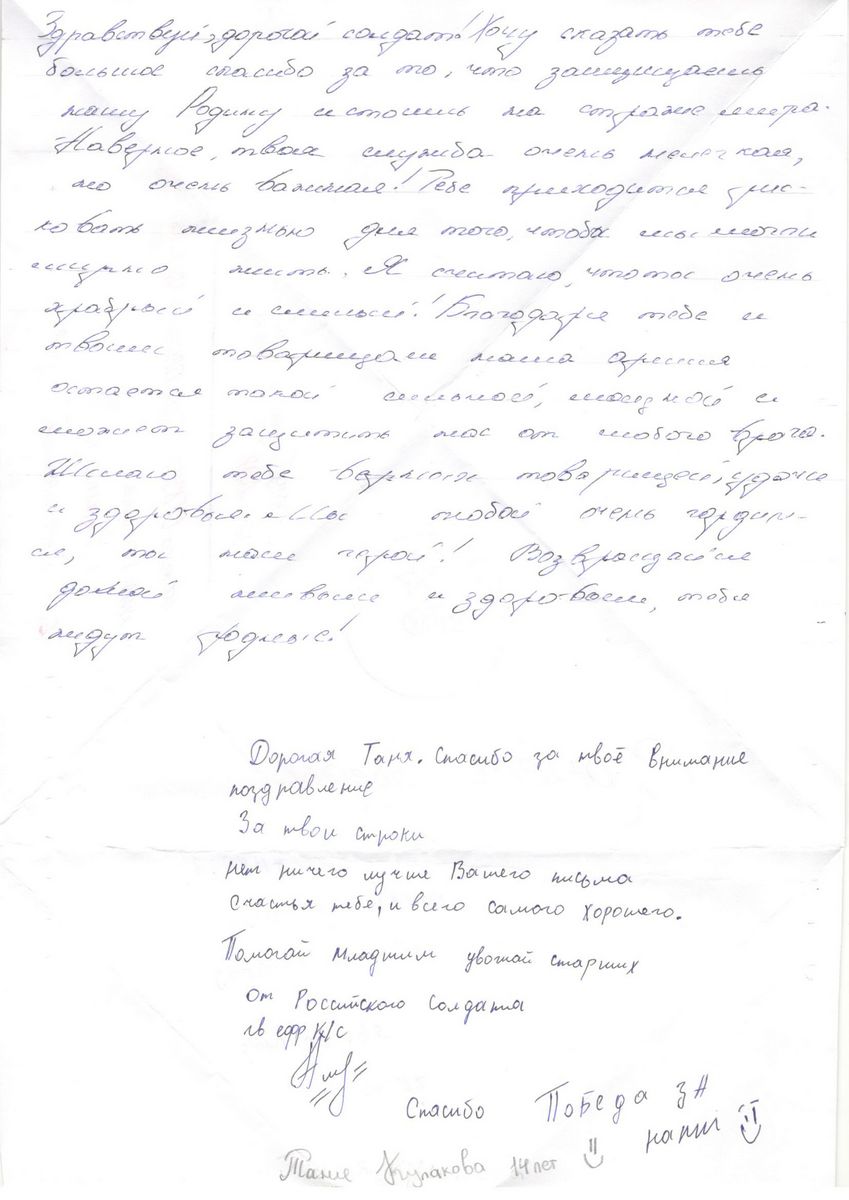 Здравствуй, дорогой солдат! Хочу сказать тебе
большое спасибо за то, что защищаешь
нашу Родину и стоишь на страже мира.
Наверное, твоя служба очень нелегкая,
но очень важная! Тебе приходится рис-
ковать жизнью для того, чтобы мы могли
мирно жить. Я считаю, что ты очень
храбрый и сильный! Благодаря тебе и
твоим товарищам наша армия
остается такой сильной, мощной и
может защитить нас от любого врага.
Желаю тебе верных товарищей, удачи
и здоровья. Мы тобой очень гордим-
ся, ты наш герой! Возвращайся
домой живым и здоровым, тебя
ждут родные!
Дорогая Таня. Спасибо за твоё внимание
поздравление
За твои строки
нет ничего лучше Вашего письма
Счастья тебе, и всего самого хорошего.
Помогай младшим уважай старших
От Российского Солдата
гв ефр К/С
Спасибо Победа ЗА
нами
Таня Кулакова 14 лет